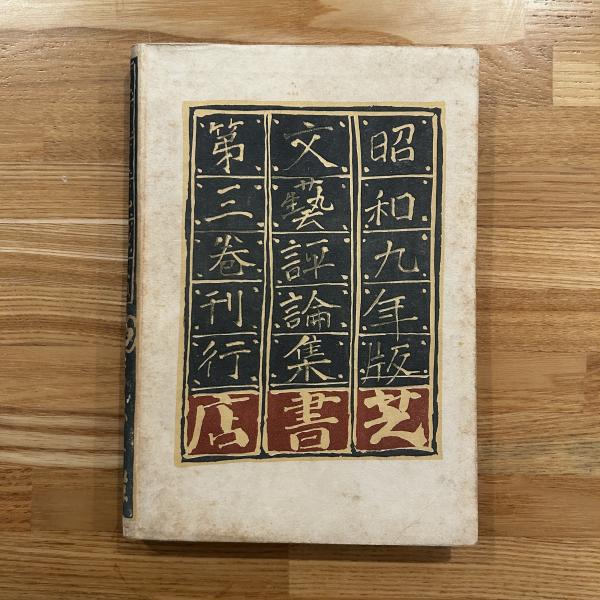 昭和九年版
文藝評論集
第三卷刊行
芝書店